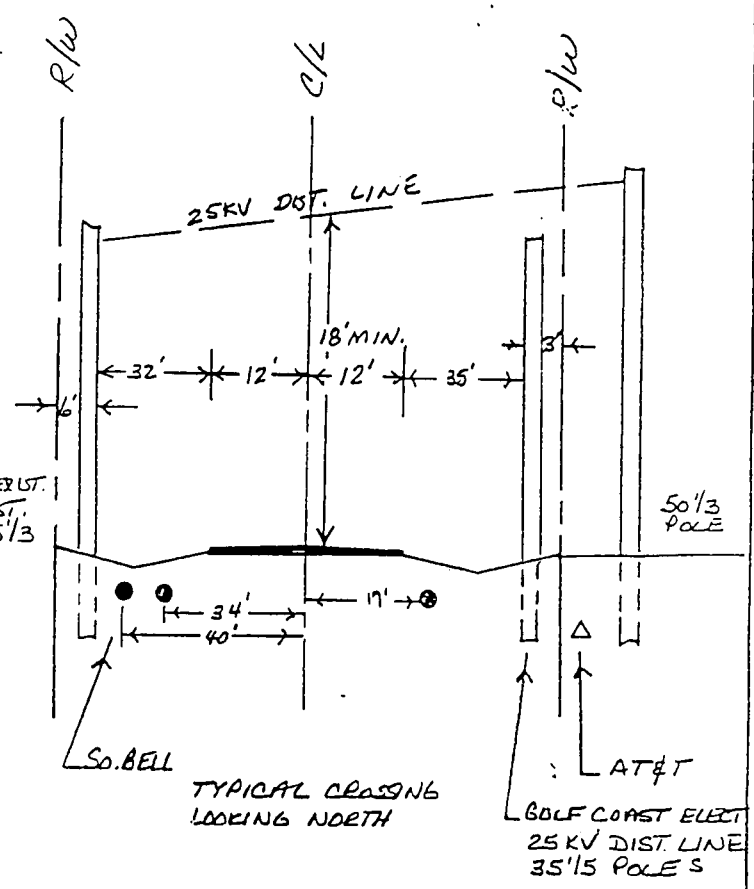 R/W
C/L
R/W
25KV DIST. LINE
18' MIN.
3'
32'
12'
12'
35'
6'
EXIST.
5'/3
50'/3
POLE
19'
34'
40'
SO. BELL
AT&T
TYPICAL CROSSING
LOOKING NORTH
GOLF COAST ELECT
25 KV DIST. LINE
35'/5 POLES